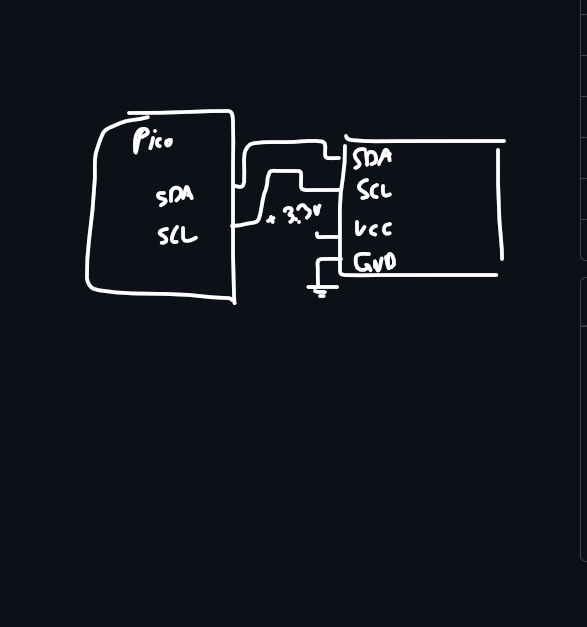 Pico
SDA
SCL
+ 3.3V
SDA
SCL
VCC
GND